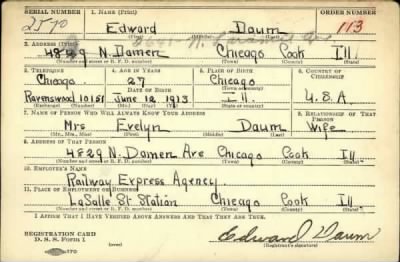 SERIAL NUMBER 1. NAME (Print) ORDER NUMBER
2570 Edward Daum 113
(First) (Middle) (Last)
2. ADDRESS (Print)
4829 N. Damen Chicago Cook Ill
(Number and street or R. F. D. number) (Town) (County) (State)
3. TELEPHONE 4. AGE IN YEARS 5. PLACE OF BIRTH 6. COUNTRY OF CITIZENSHIP
Chicago 27 Chicago
DATE OF BIRTH (Town or county)
Ravenswood 10151 June 12, 1913 Ill. U.S.A.
(Exchange) (Number) (Mo.) (Day) (Yr.) (State or country)
7. NAME OF PERSON WHO WILL ALWAYS KNOW YOUR ADDRESS 8. RELATIONSHIP OF THAT PERSON
Mrs Evelyn Daum Wife
(Mr., Mrs., Miss) (First) (Middle) (Last)
9. ADDRESS OF THAT PERSON
4829 N. Damen Ave Chicago Cook Ill
(Number and street or R. F. D. number) (Town) (County) (State)
10. EMPLOYER'S NAME
Railway Express Agency
11. PLACE OF EMPLOYMENT OR BUSINESS
LaSalle St Station Chicago Cook Ill
(Number and street or R. F. D. number) (Town) (County) (State)
I AFFIRM THAT I HAVE VERIFIED ABOVE ANSWERS AND THAT THEY ARE TRUE.
REGISTRATION CARD
D. S. S. Form 1 Edward Daum
(Registrant's signature)